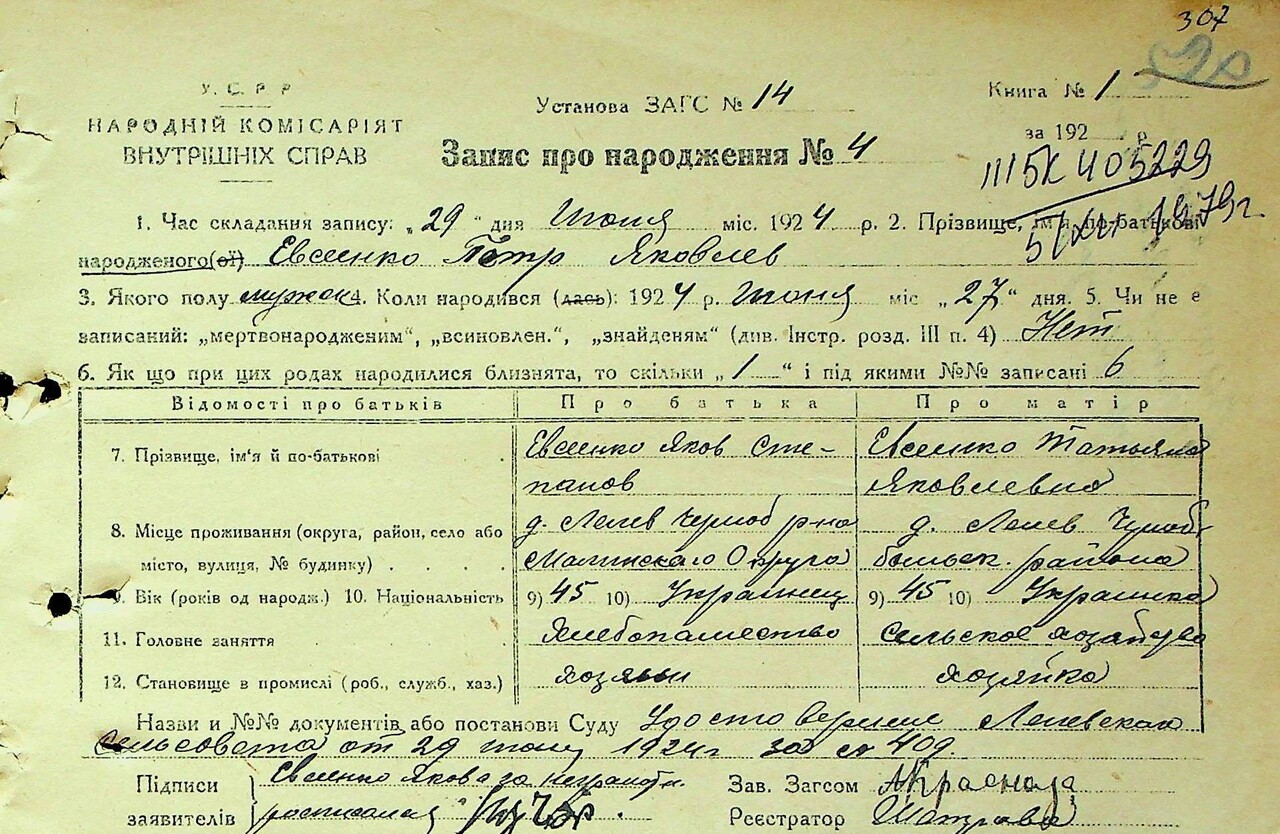 307
У. С. Р. Р.
НАРОДНІЙ КОМІСАРІЯТ
ВНУТРІШНІХ СПРАВ
Установа ЗАГС № 14
Книга № 1
за 192 р.
Запис про народження № 4
111БК 405229
5/XII 1979г.
1. Час складання запису: „29“ дня Июня міс. 1924 р. 2. Прізвище, ім'я по-батькові
народженого(ої) Евсеенко Петр Яковлев
3. Якого полу мужск 4. Коли народився (лась): 1924 р. Июня міс „27“ дня. 5. Чи не є
записаний: „мертвонародженим“, „всиновлен.“, „знайденям“ (див. Інстр. розд. III п. 4) Нет
6. Як що при цих родах народилися близнята, то скільки „1“ і під якими №№ записані б
Відомості про батьків Про батька Про матір
7. Прізвище, ім'я й по-батькові
Евсеенко Яков Сте-
панов
Евсеенко Татьяна
Яковлевна
8. Місце проживання (округа, район, село або
місто, вулиця, № будинку)
д. Лелев Черноб р-на
Малинскаго Округа
д. Лелев Черно
быльск. района
9. Вік (років од народж.) 10. Національність 9) 45 10) Украинец 9) 45 10) Украинка
11. Головне заняття Хлебопашество сельское хозайство
12. Становище в промислі (роб., служб., хаз.) хозяин хозяйка
Назви и №№ документів або постанови Суду Удостоверение Лелевская
сельсовета от 29 1924г за № 409.
Підписи Евсеенко Якова за неграмотн. Зав. Загсом
заявителів росписался Реєстратор